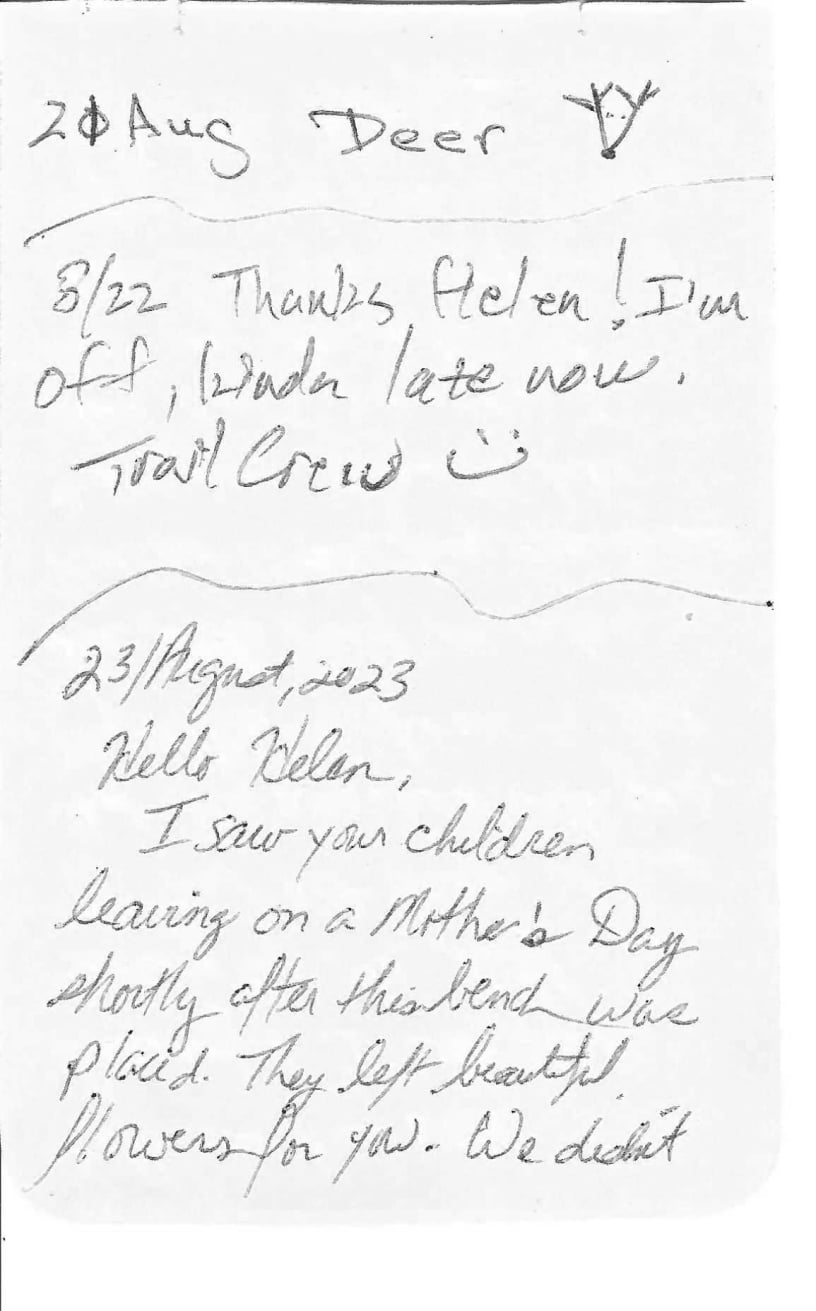 20 Aug Deer
8/22 Thanks Helen! I'm
off, kinda late now.
Trail Crew
23/August, 2023
Hello Helen,
I saw your children
leaving on a Mother's Day
shortly after this bench was
placed. They left beautiful
flowers for you. We didn't